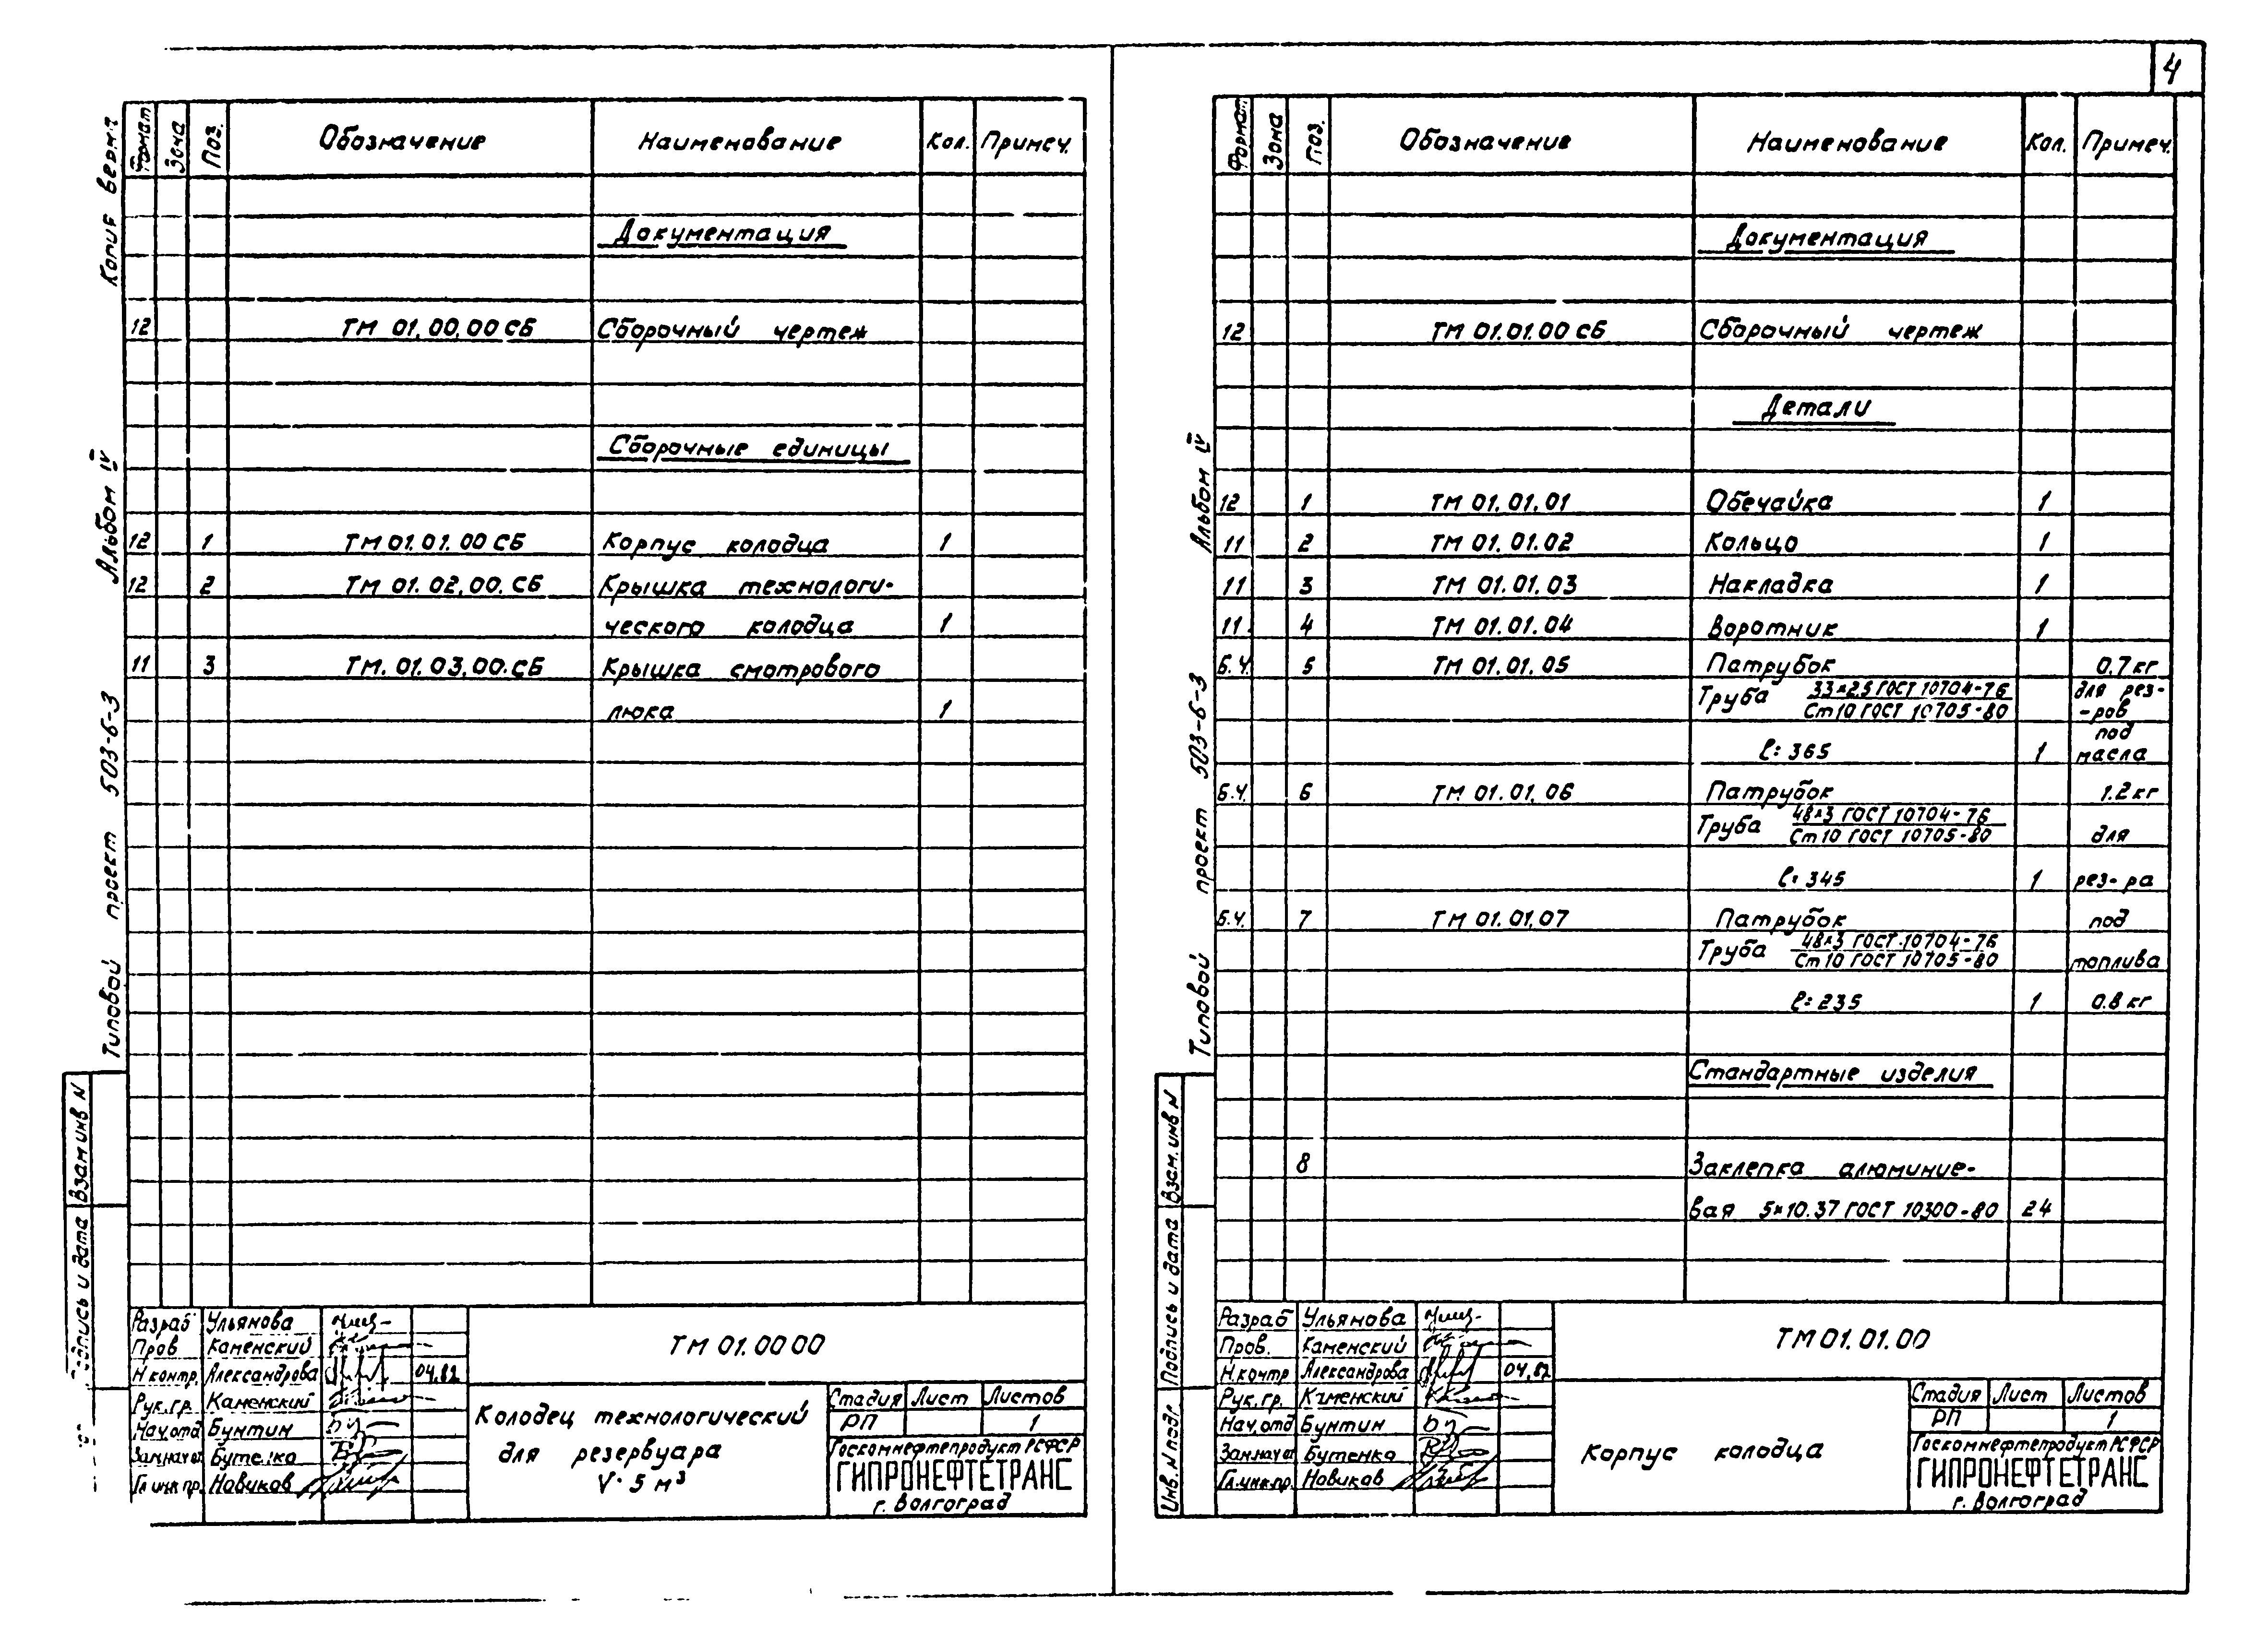 4
Копия верна
Альбом IV
Типовой проект 503-6-3
Взам инв N
Подпись и дата
Формат Зона Поз. Обозначение Наименование Кол. Примеч.
Документация
12 ТМ 01.00.00 СБ Сборочный чертеж
Сборочные единицы
12 1 ТМ 01.01.00 СБ Корпус колодца 1
12 2 ТМ 01.02.00.СБ Крышка технологи-
ческого колодца 1
11 3 ТМ.01.03.00.СБ Крышка смотрового
люка 1
Разраб Ульянова
Пров Каменский
Н.контр. Александрова 04.82
Рук.гр. Каменский
Нач.отд Бунтин
Зам.нач.от Бутенко
Гл инж пр. Новиков
ТМ 01.00 00
Колодец технологический
для резервуара
V· 5 м³
Стадия Лист Листов
РП 1
Госкомнефтепродукт РСФСР
ГИПРОНЕФТЕТРАНС
г. Волгоград
Альбом IV
Типовой проект 503-6-3
Взам.инв N
Подпись и дата
Инв. N подл
Формат Зона Поз. Обозначение Наименование Кол. Примеч.
Документация
12 ТМ 01.01.00 СБ Сборочный чертеж
Детали
12 1 ТМ 01.01.01 Обечайка 1
11 2 ТМ 01.01.02 Кольцо 1
11 3 ТМ 01.01.03 Накладка 1
11. 4 ТМ 01.01.04 Воротник 1
Б.Ч. 5 ТМ 01.01.05 Патрубок 0.7 кг
Труба 33×2.5 ГОСТ 10704-76 для рез-
Ст 10 ГОСТ 10705-80 -ров
под
ℓ= 365 1 масла
Б.Ч. 6 ТМ 01.01.06 Патрубок 1.2 кг
Труба 48×3 ГОСТ 10704-76
Ст 10 ГОСТ 10705-80 для
ℓ= 345 1 рез-ра
Б.Ч. 7 ТМ 01.01.07 Патрубок под
Труба 48×3 ГОСТ 10704-76
Ст 10 ГОСТ 10705-80 топлива
ℓ= 235 1 0.8 кг
Стандартные изделия
8 Заклепка алюминие-
вая 5×10.37 ГОСТ 10300-80 24
Разраб Ульянова
Пров. Каменский
Н.контр Александрова 04.82
Рук.гр. Каменский
Нач.отд Бунтин
Зам.нач от Бутенко
Гл.инж.пр. Новиков
ТМ 01.01.00
Корпус колодца
Стадия Лист Листов
РП 1
Госкомнефтепродукт РСФСР
ГИПРОНЕФТЕТРАНС
г. Волгоград